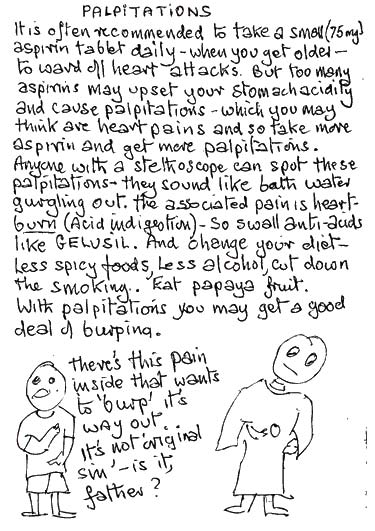 PALPITATIONS
It is often recommended to take a small (75mg)
aspirin tablet daily - when you get older -
to ward off heart attacks. But too many
aspirins may upset your stomach acidity
and cause palpitations - which you may
think are heart pains and so take more
aspirin and get more palpitations.
Anyone with a stethoscope can spot these
palpitations - they sound like bath water
gurgling out. the associated pain is heart-
burn (Acid indigestion) - So swall anti-acids
like GELUSIL. And change your diet-
Less spicy foods, Less alcohol, cut down
the smoking.. Eat papaya fruit.
With palpitations you may get a good
deal of burping.
there's this pain
inside that wants
to 'burp' it's
way out.
It's not 'original
sin' - is it,
father?